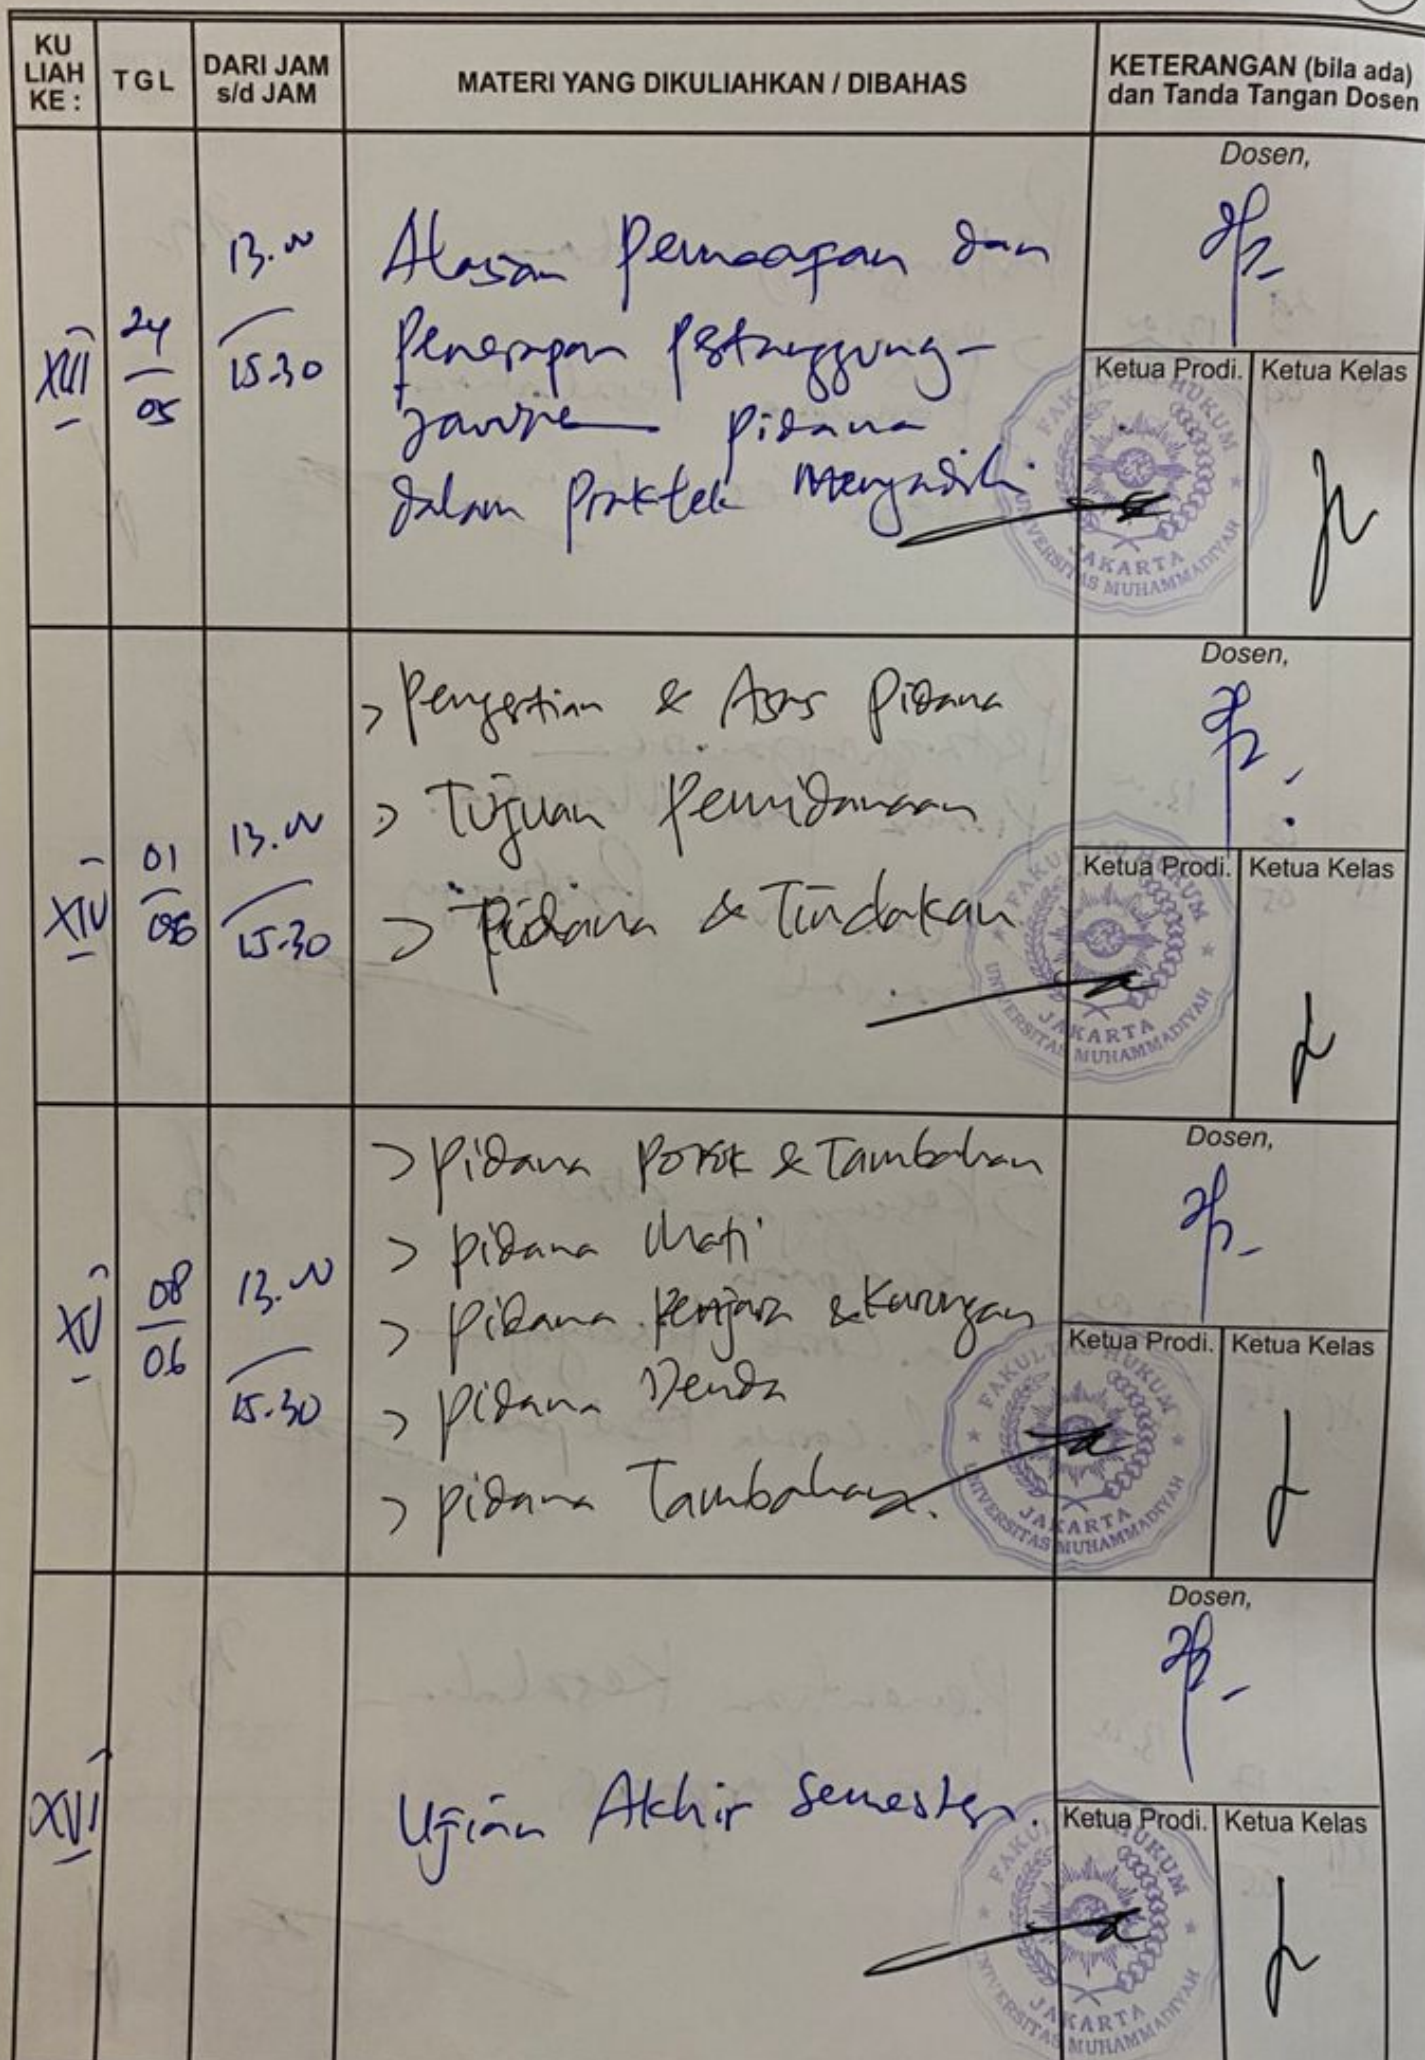 KU
LIAH
KE :
TGL
DARI JAM
s/d JAM
MATERI YANG DIKULIAHKAN / DIBAHAS
KETERANGAN (bila ada)
dan Tanda Tangan Dosen
XIII
24
05
13.00
15.30
Alasan Pemaafan dan
Penerapan Pertanggung-
jawaban pidana
dalam Praktek Mengadili
Dosen,
Ketua Prodi.
Ketua Kelas
FAKULTAS HUKUM
UNIVERSITAS MUHAMMADIYAH
JAKARTA
XIV
01
06
13.00
15.30
> Pengertian & Asas Pidana
> Tujuan Pemidanaan
> Pidana & Tindakan
Dosen,
Ketua Prodi.
Ketua Kelas
FAKULTAS HUKUM
UNIVERSITAS MUHAMMADIYAH
JAKARTA
XV
08
06
13.00
15.30
> Pidana Pokok & Tambahan
> Pidana Mati
> Pidana Penjara & Kurungan
> Pidana Denda
> Pidana Tambahan.
Dosen,
Ketua Prodi.
Ketua Kelas
FAKULTAS HUKUM
UNIVERSITAS MUHAMMADIYAH
JAKARTA
XVI
Ujian Akhir Semester.
Dosen,
Ketua Prodi.
Ketua Kelas
FAKULTAS HUKUM
UNIVERSITAS MUHAMMADIYAH
JAKARTA